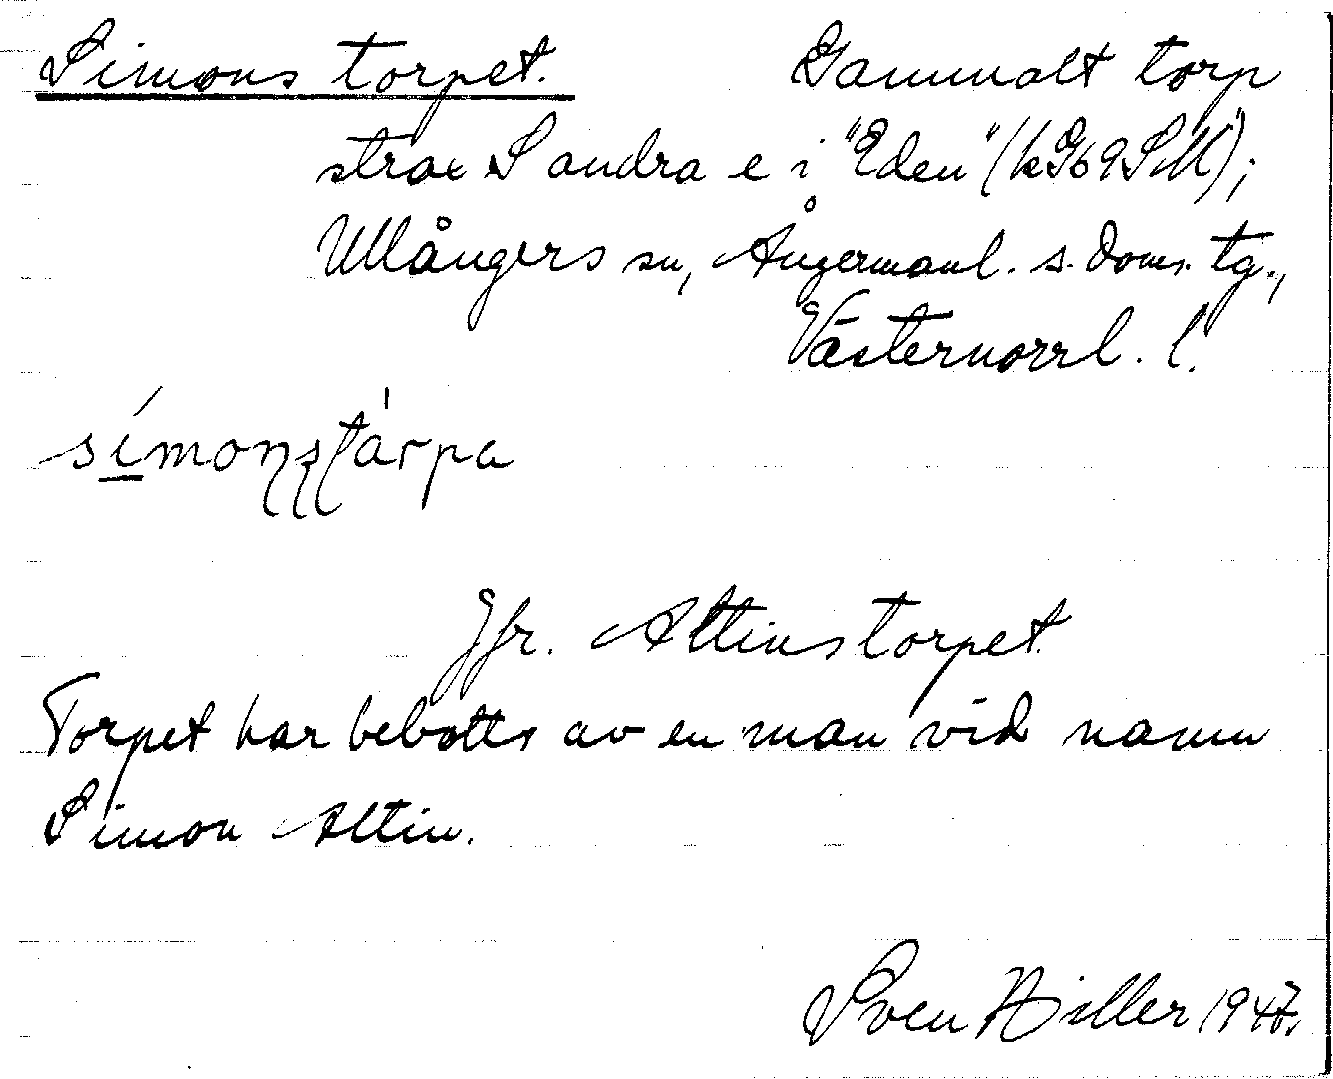 Simonstorpet. Gammalt torp
strax S andra e i "Eden" (kG69SM);
Ullångers sn, Ångermanl. s. doms. tg.,
Västernorrl. l.
símonstárpa
Jfr. Altinstorpet
Torpet har bebotts av en man vid namn
Simon Altin.
Sven Hiller 1947.